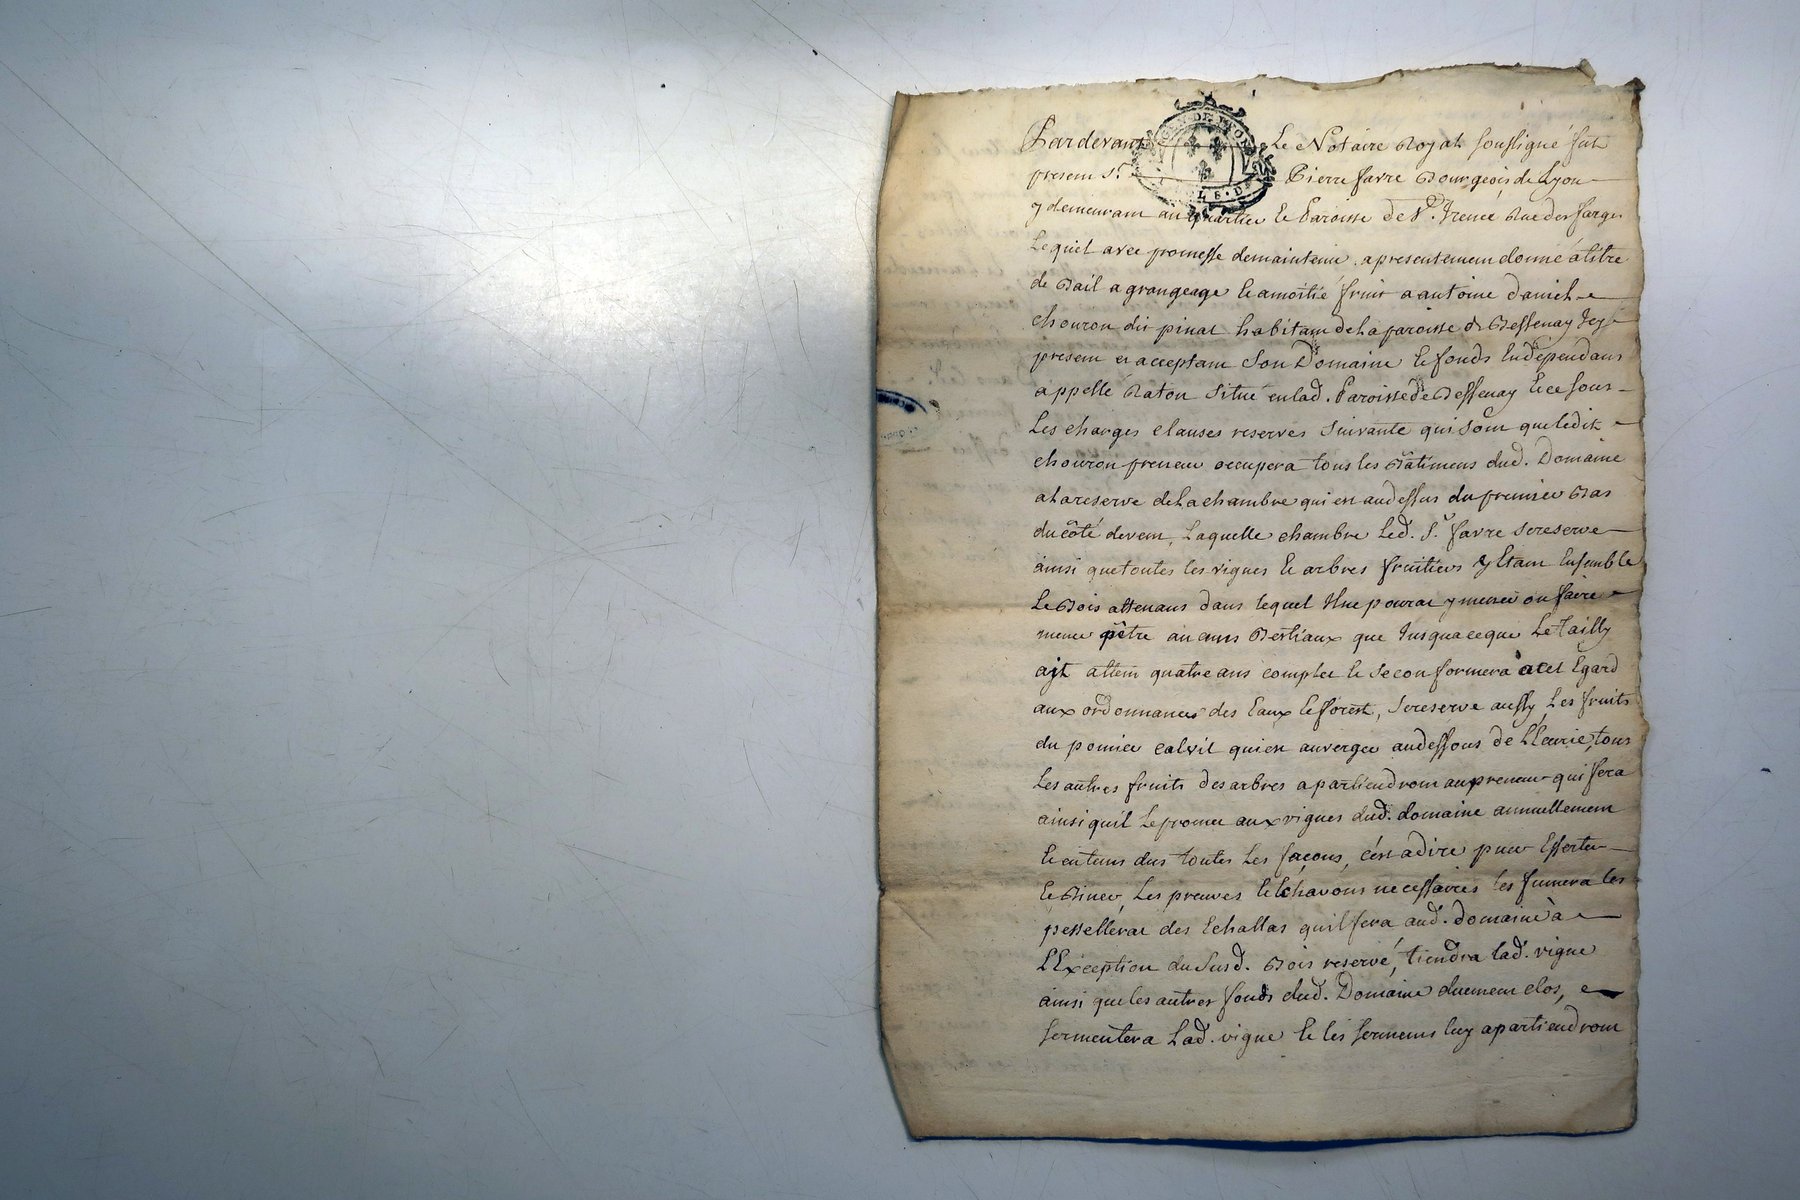 Pardevant Le Notaire Royal soussigné fut
present Sr. Pierre favre Bourgeois de Lyon
y demeurant au quartier et Paroisse de St. Irenée Rue des farges
Lequel avec promesse de maintenir, a presentement donné a titre
de Bail a grangeage et a moitié fruit a antoine daniel
chouron dit pinat habitant de La paroisse de Bessenay Icy
present et acceptant Son Domaine et fonds En dépendans
appellé Raton Situé en lad. Paroisse de Bessenay et ce sous
Les charges clauses reserves Suivante qui sont que ledit
chouron preneur occupera tous les Bâtimens dud. Domaine
a La reserve de La chambre qui est audessus du premier Bas
du côté de vent, Laquelle chambre Led. Sr. favre se reserve
ainsi que toutes les vignes et arbres fruitiers y Etant Ensemble
Le Bois attenant dans lequel Il ne pourat y mener ou faire
mener pêtre aucuns Bestiaux que Jusqu'a ce que Le tailly
ayt atteint quatre ans complet et se conformera a cet Egard
aux ordonnances des Eaux et forest, se reserve aussy Les fruits
du pomier calvil qui est au verger audessous de L'Ecurie, tous
Les autres fruits des arbres apartiendront au preneur qui fera
ainsi qu'il le promet aux vignes dud. domaine annuellement
et en tems dus toutes Les façons, c'est a dire
et Biner, Les preuves et Echavons necessaires les fumera les
pessellerat des Echallas qu'il fera aud. domaine à
L'Exception du Susd. Bois reservé, tiendra lad. vigne
ainsi que les autres fonds dud. Domaine duement clos,
sermentera Lad. vigne et les sermens luy apartiendront